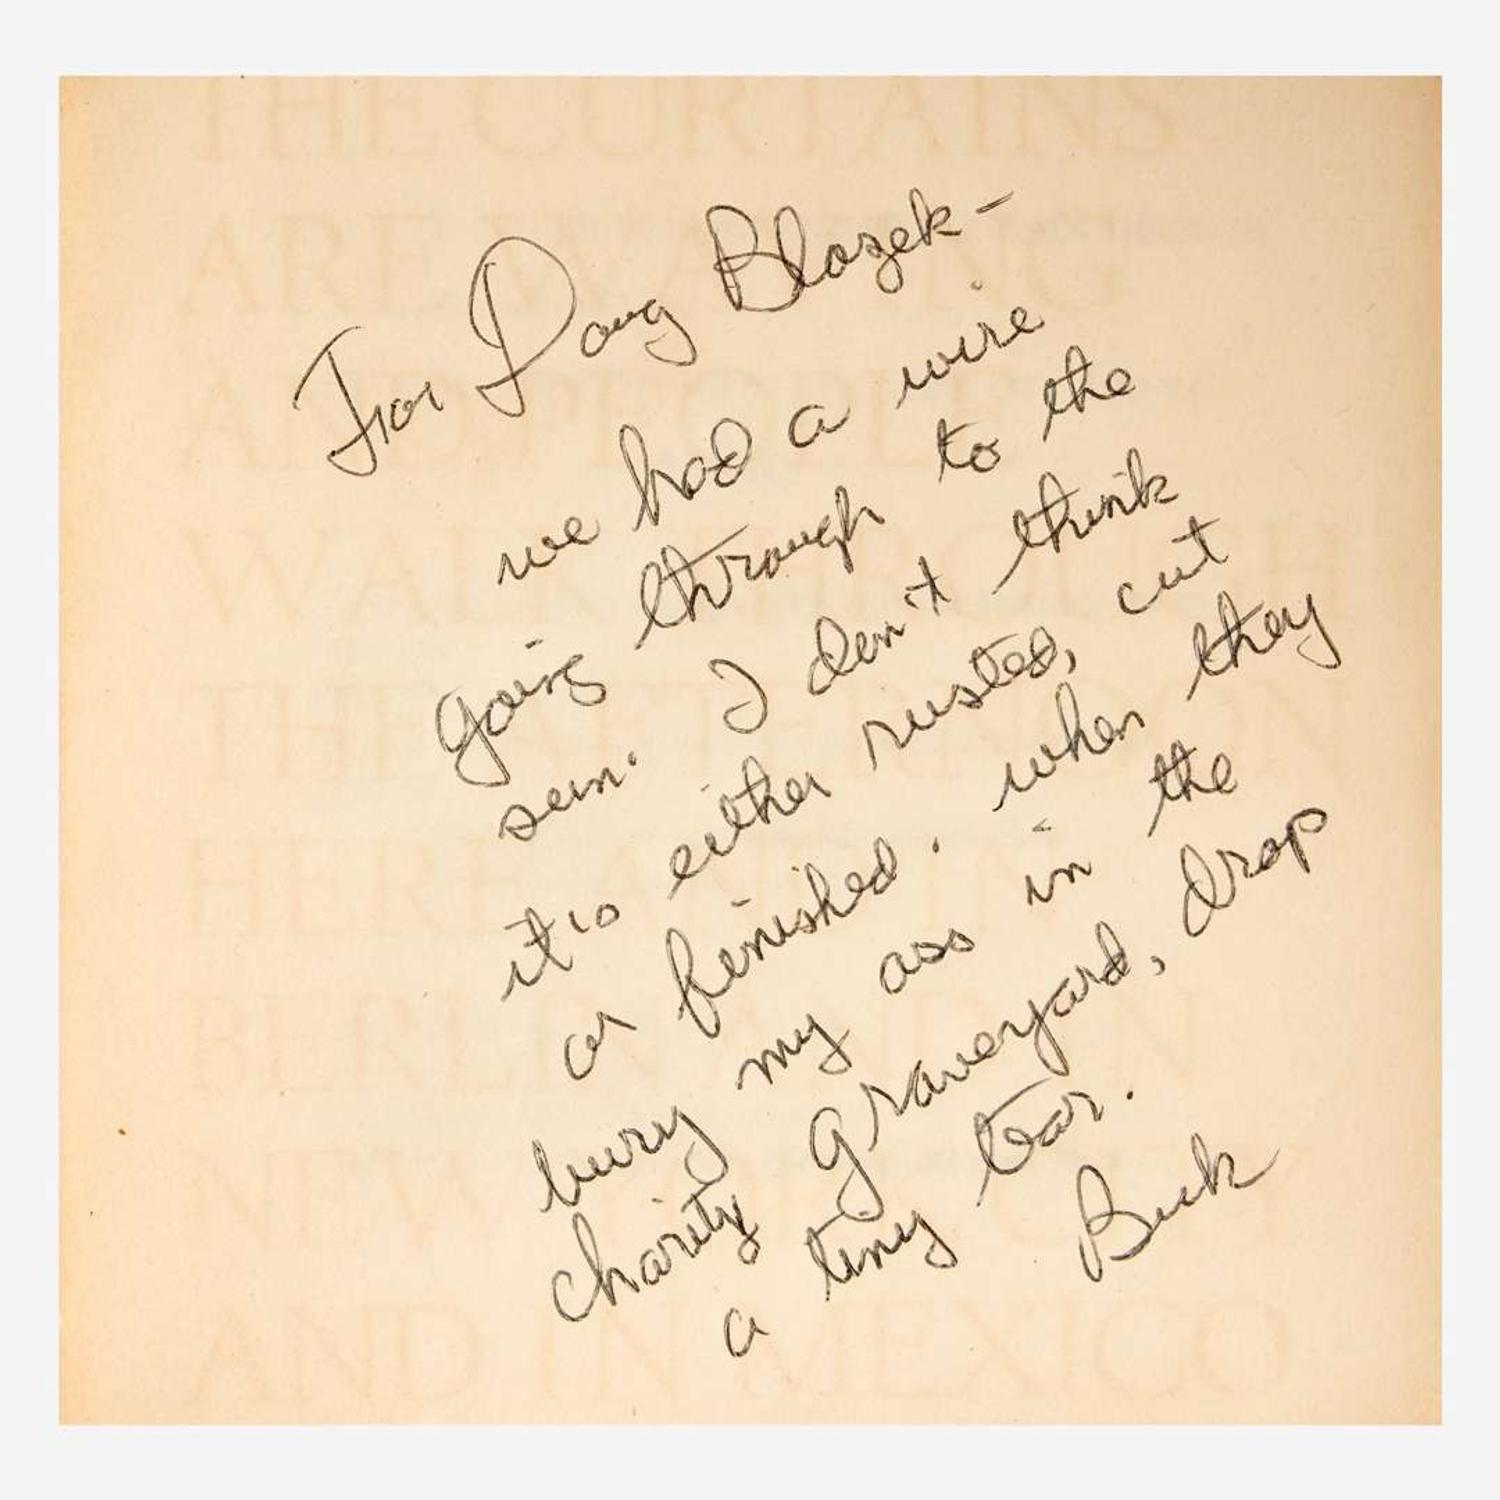 For Doug Blazek -
we had a wire
going through to the
sun. I don't think
it's either rusted, cut
or finished. when they
bury my ass in the
charity graveyard, drop
a tiny tear.
Buk
THE CURTAINS
ARE WAVING
AND PEOPLE
WALK THROUGH
THE
HERE
NEW
AND IN MEXICO